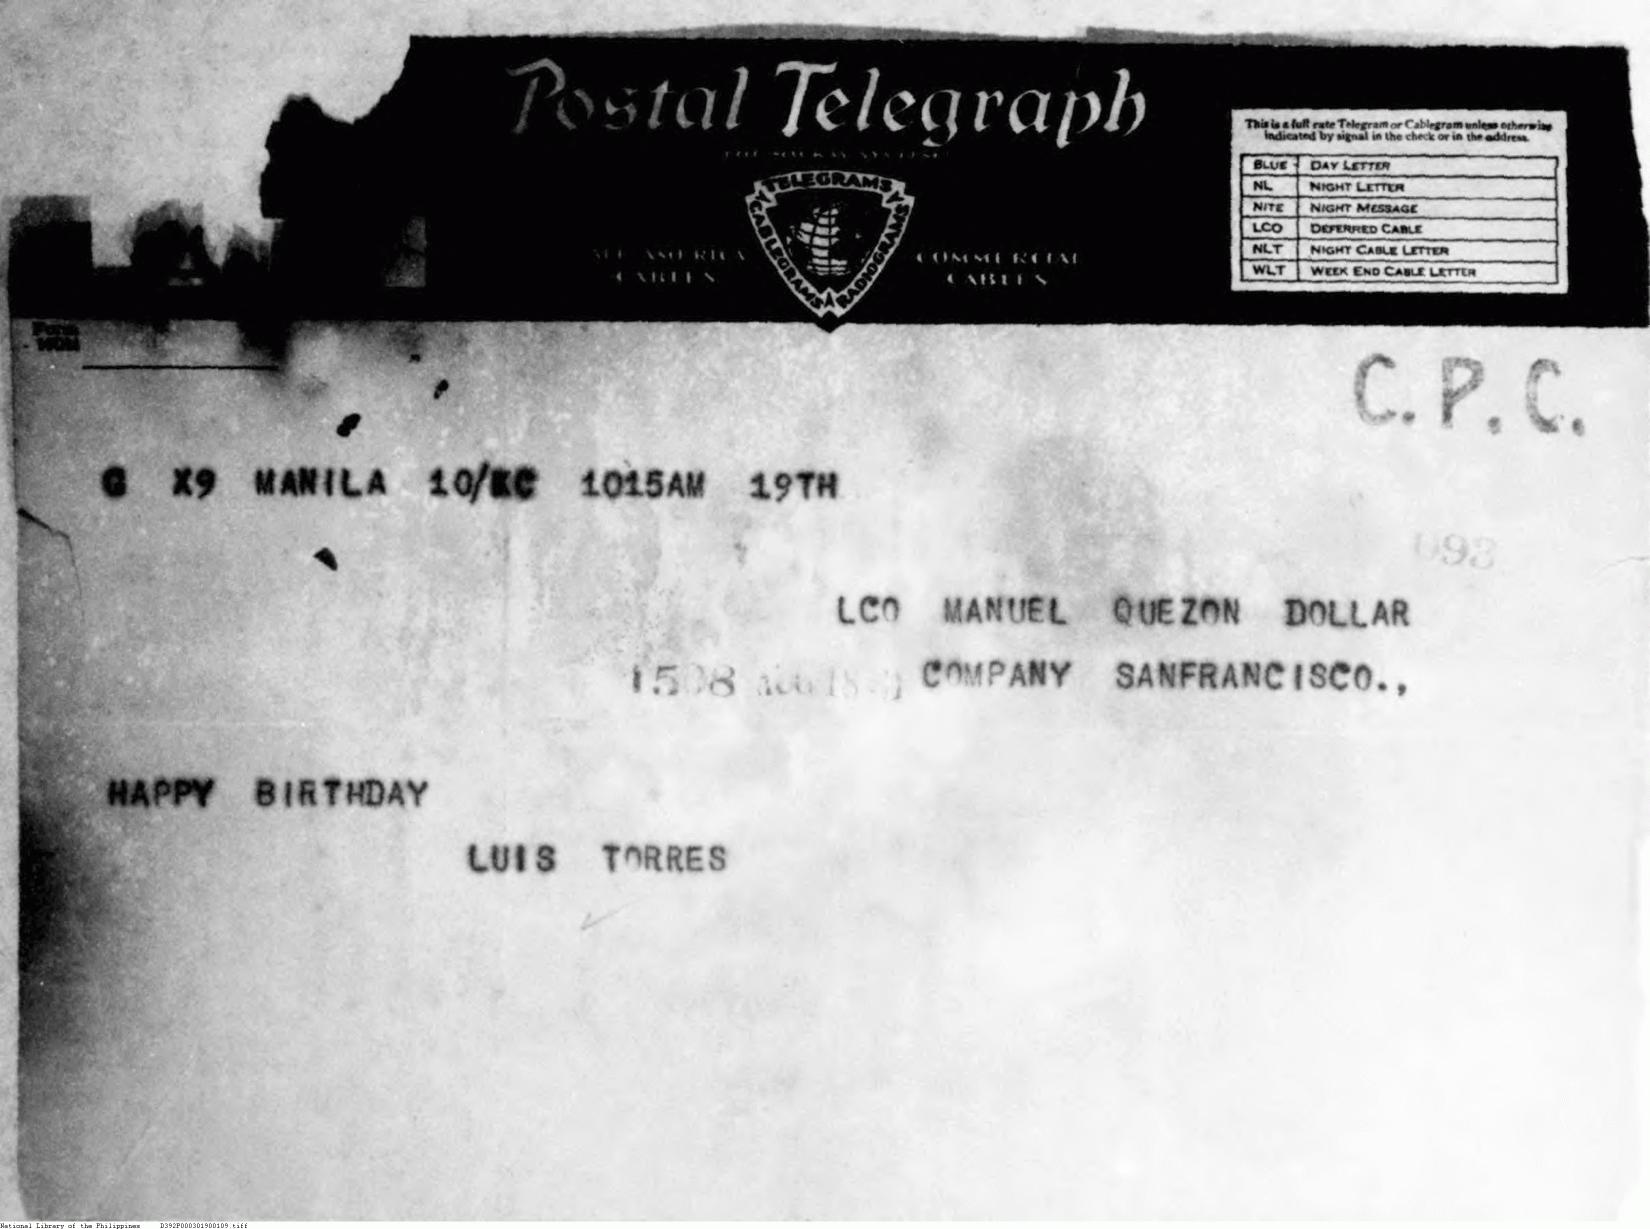 Postal Telegraph
THE MACKAY SYSTEM
TELEGRAMS
CABLEGRAMS
RADIOGRAMS
ALL AMERICA
CABLES
COMMERCIAL
CABLES
This is a full rate Telegram or Cablegram unless otherwise
indicated by signal in the check or in the address.
BLUE DAY LETTER
NL NIGHT LETTER
NITE NIGHT MESSAGE
LCO DEFERRED CABLE
NLT NIGHT CABLE LETTER
WLT WEEK END CABLE LETTER
Form
C.P.C.
G X9 MANILA 10/KC 1015AM 19TH
LCO MANUEL QUEZON DOLLAR
COMPANY SANFRANCISCO.,
HAPPY BIRTHDAY
LUIS TORRES
National Library of the Philippines D392P000301900109.tiff